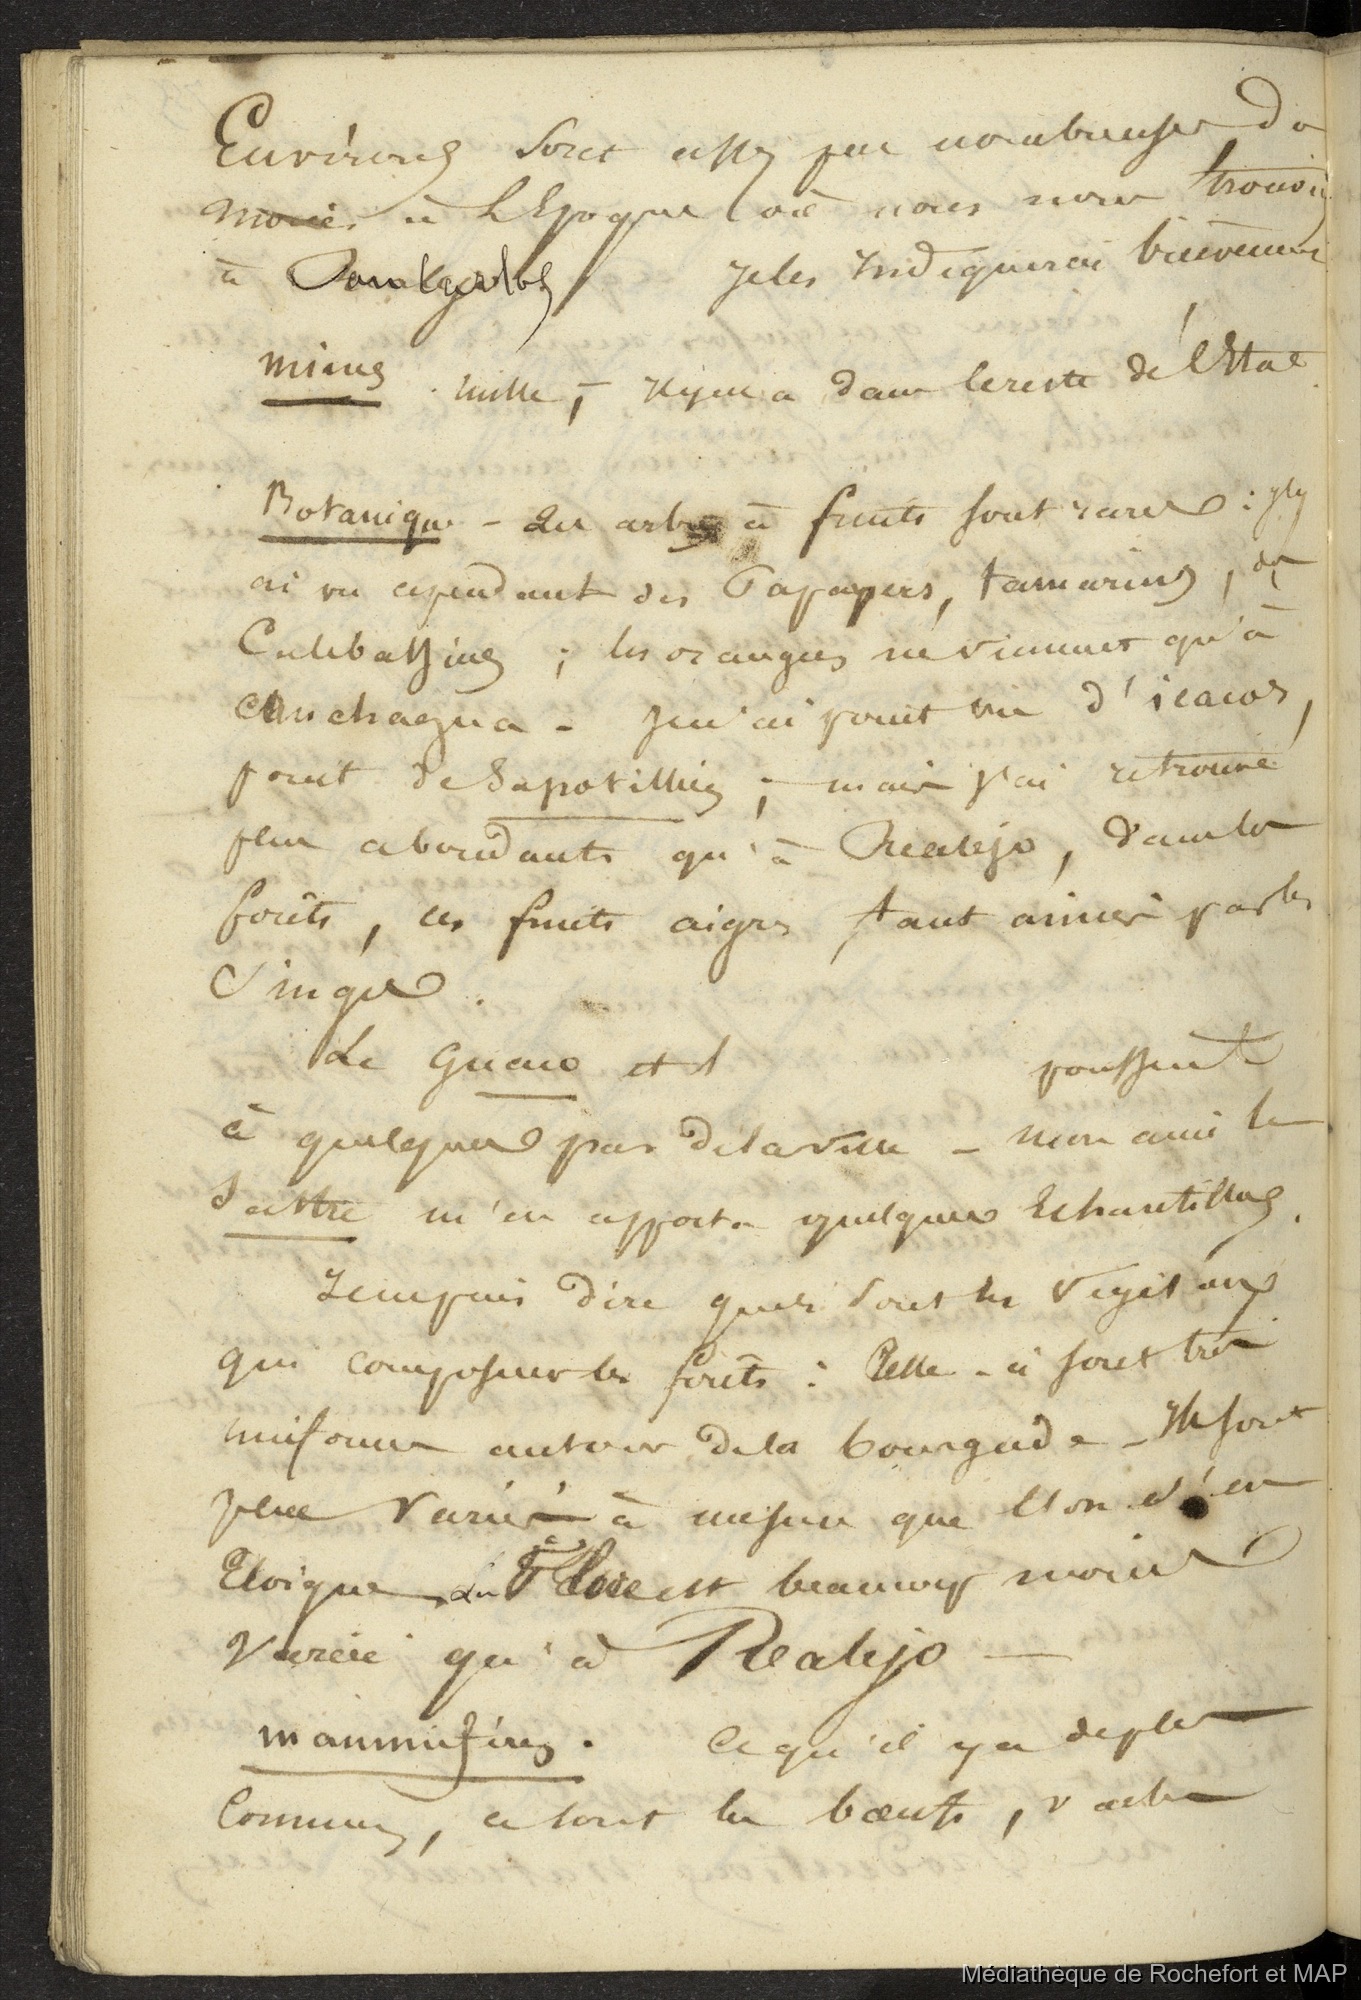 Environs sont assez peu nombreuses du
moins à l'Epoque où nous nous trouvions
à San Carlos je les Indiquerai
mines nulle, - Il y en a dans le reste de l'Etat
Botanique - Les arbres à fruits sont rares : j'y
ai vu cependant des Papayers, tamarins, des
Calebassiers ; les oranges ne viennent qu'à
Conchagua - Je n'ai point vu d'icacos,
point de Sapotilliers ; - mais j'ai retrouvé
plus abondants qu'à Realejo, dans les
forêts, ces fruits aigres tant aimés par les
Singes.
Le Guaco et l' poussent
à quelques pas de la ville - mon ami le
m'en apporta quelques Echantillons.
Je ne puis dire quels sont les végétaux
qui composent les forêts : Celle-ci sont très
uniformes autour de la bourgade - Ils sont
plus variés à mesure que l'on s'en
Eloigne La Flore est beaucoup moins
variée qu'à Realejo -
mammifères. Ce qu'il y a de plus
Commun, ce sont les bœufs, vaches
Médiathèque de Rochefort et MAP